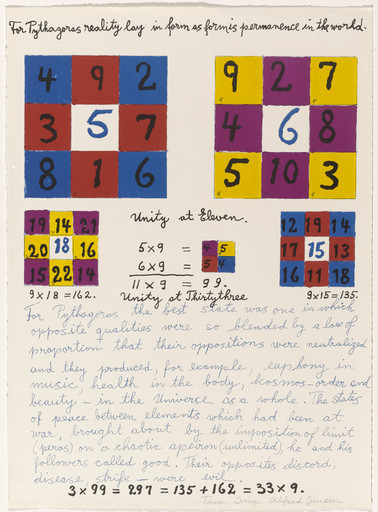 For Pythagoras reality lay in form as form is permanence in the world.
4 9 2
3 5 7
8 1 6
9 2 7
4 6 8
5 10 3
Unity at Eleven.
19 14 21
20 18 16
15 22 14
9×18=162.
5×9 = 4 5
6×9 = 5 4
11×9 = 99.
Unity at Thirtythree
12 19 14
17 15 13
16 11 18
9×15=135.
For Pythagoras the best state was one in which
opposite qualities were so blended by a law of
proportion that their oppositions were neutralized
and they produced, for example, euphony in
music, health in the body, kosmos-order and
beauty - in the Universe as a whole. The states
of peace between elements which had been at
war, brought about by the imposition of limit
(peras) on a chaotic apeiron (unlimited), he and his
followers called good. Their opposites discord,
disease, strife - were evil.
3×99 = 297 = 135+162 = 33×9.
Alfred Jensen